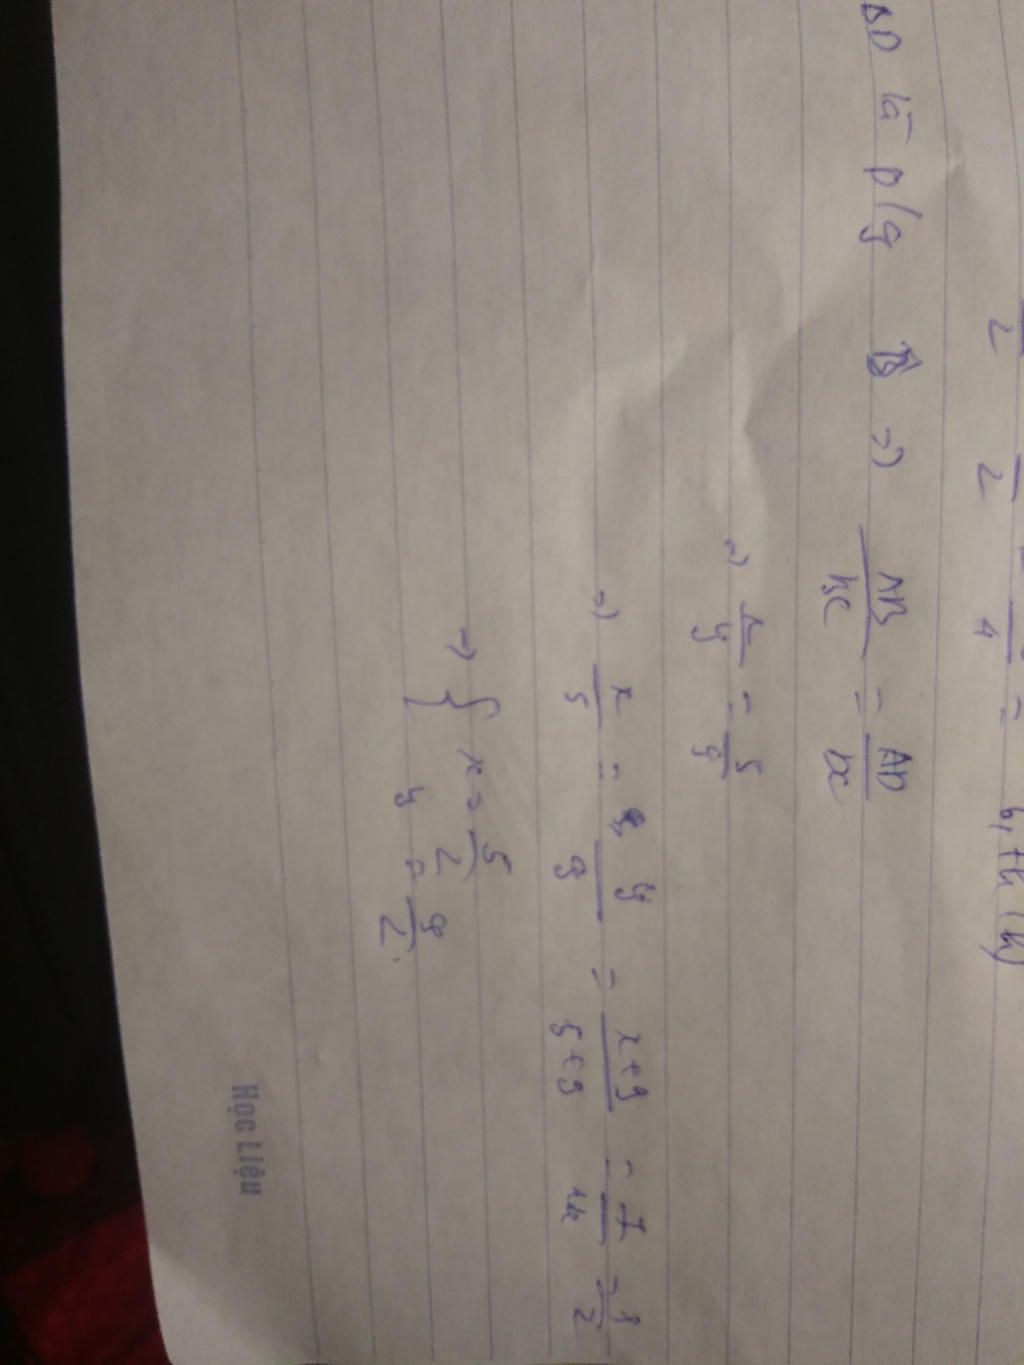 2 2 4 = 6,Th (h)
BD là p/g B => AB/BC = AD/DC
=> x/y = 5/9
=> x/5 = y/9 = x+y/5+9 = 7/14 = 1/2
=> { x = 5/2
y = 9/2.
Học Liệu